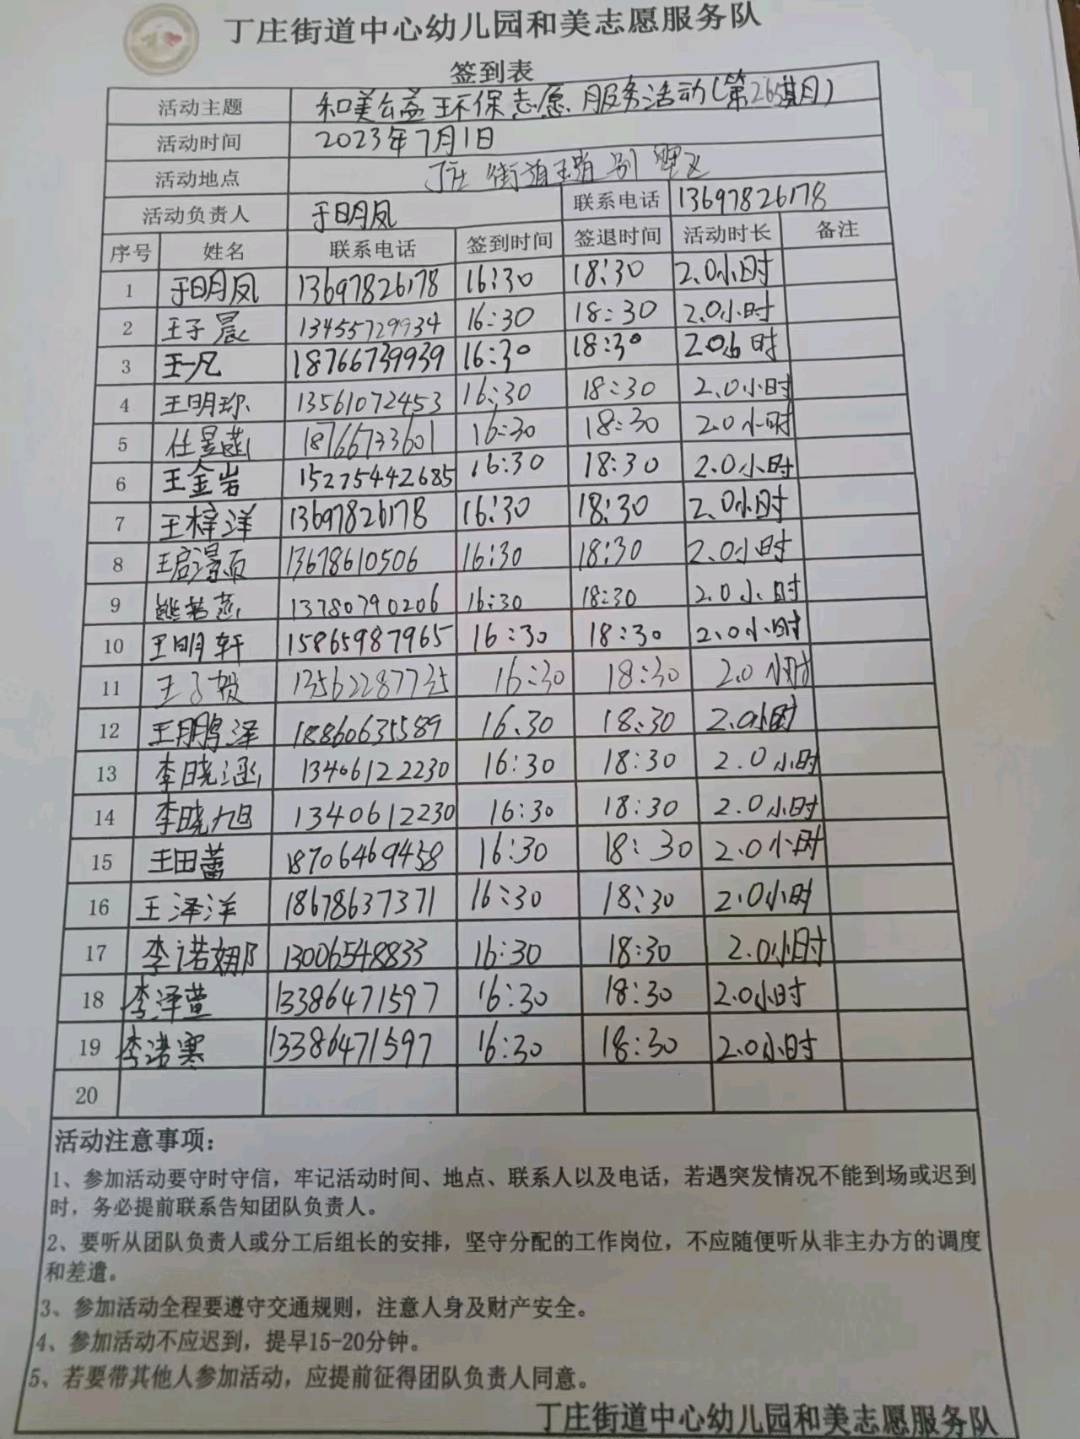 丁庄街道中心幼儿园和美志愿服务队
签到表
活动主题 和美公益环保志愿服务活动(第265期)
活动时间 2023年7月1日
活动地点 丁庄街道
活动负责人 于明凤 联系电话 13697826178
序号 姓名 联系电话 签到时间 签退时间 活动时长 备注
1 于明凤 13697826178 16:30 18:30 2.0小时
2 王子晨 13455729934 16:30 18:30 2.0小时
3 王一凡 18766739939 16:30 18:30 2.0小时
4 王明珍 13561072453 16:30 18:30 2.0小时
5 任昱菡 18766733601 16:30 18:30 2.0小时
6 王金岩 15275442685 16:30 18:30 2.0小时
7 王梓洋 13697826178 16:30 18:30 2.0小时
8 13678610506 16:30 18:30 2.0小时
9 13780790206 16:30 18:30 2.0小时
10 王明轩 15865987965 16:30 18:30 2.0小时
11 13562287735 16:30 18:30 2.0小时
12 王鹏泽 18860635589 16:30 18:30 2.0小时
13 李晓涵 13406122230 16:30 18:30 2.0小时
14 李晓旭 13406122230 16:30 18:30 2.0小时
15 王田蕾 18706469458 16:30 18:30 2.0小时
16 王泽洋 18678637371 16:30 18:30 2.0小时
17 李诺娜 13006548833 16:30 18:30 2.0小时
18 李泽萱 13386471597 16:30 18:30 2.0小时
19 李诺寒 13386471597 16:30 18:30 2.0小时
20
活动注意事项：
1、参加活动要守时守信，牢记活动时间、地点、联系人以及电话，若遇突发情况不能到场或迟到
时，务必提前联系告知团队负责人。
2、要听从团队负责人或分工后组长的安排，坚守分配的工作岗位，不应随便听从非主办方的调度
和差遣。
3、参加活动全程要遵守交通规则，注意人身及财产安全。
4、参加活动不应迟到，提早15-20分钟。
5、若要带其他人参加活动，应提前征得团队负责人同意。
丁庄街道中心幼儿园和美志愿服务队